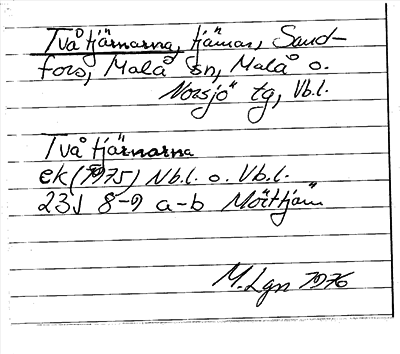 Två tjärnarna, tjärnar, Sand-
fors, Malå sn, Malå o.
Norsjö tg, Vb.l.
Två tjärnarna
ek (1975) Nb.l. o. Vb.l.
23J 8-9 a-b Mörttjärn
M. Lgn 1976